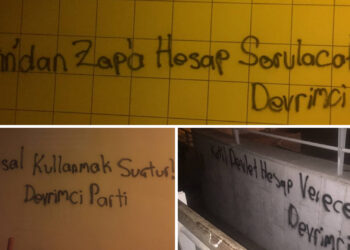 n'dan Zap'a Hesap Sorulaca
Devrimci
sal Kullanmak Suçtur!
Devrimci Parti
Katil Devlet Hesap Verece
Devrimc